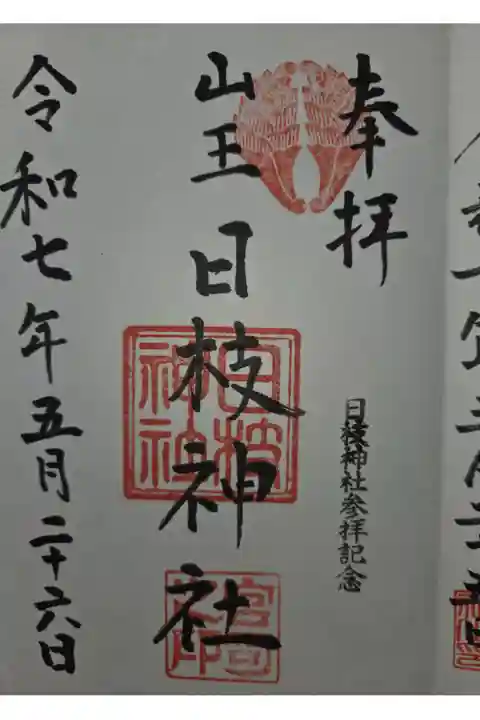 奉拝
日枝神社参拝記念
山王日枝神社
日枝
神社
宮司
之印
令和七年五月二十六日